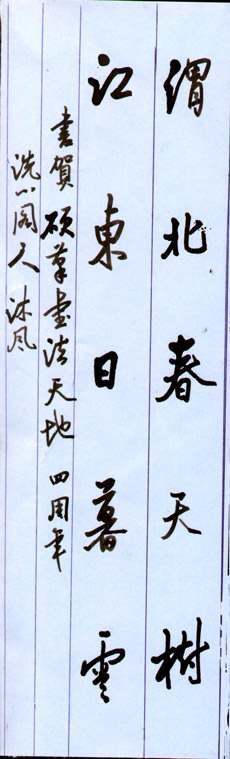 渭北春天樹
江東日暮雲
書賀 硕草書法天地 四周年
洗心阁人 沐风